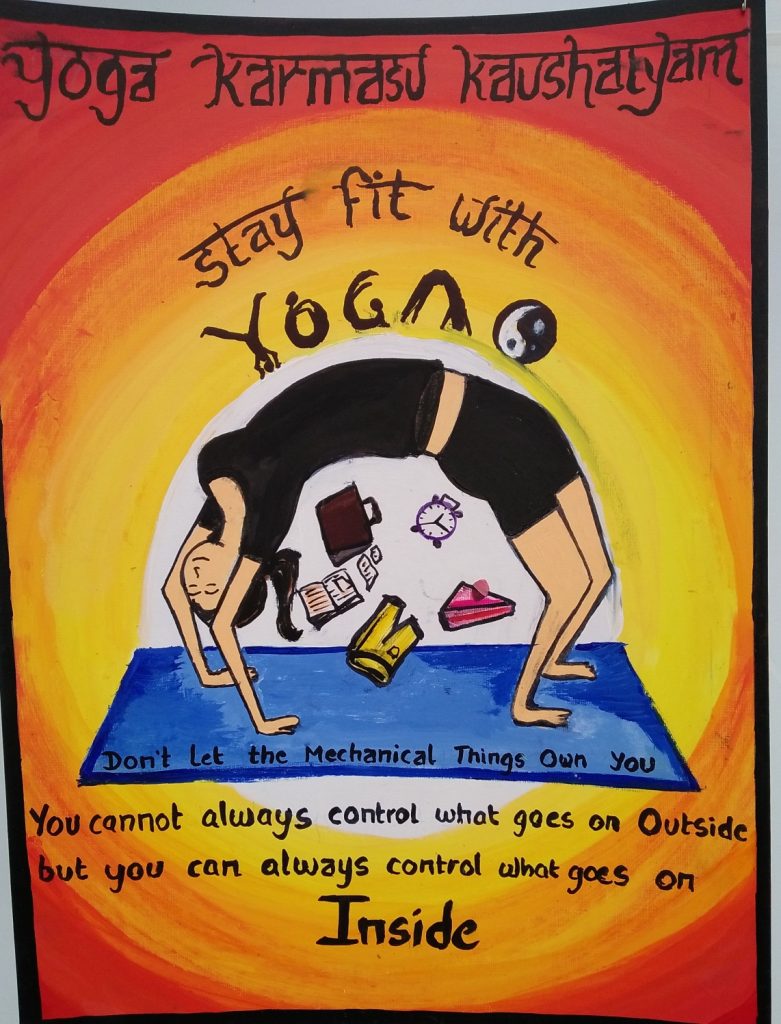 Yoga Karmasu Kaushalyam
Stay fit with
YOGA
Don't Let the Mechanical Things Own You
You cannot always control what goes on Outside
but you can always control what goes on
Inside